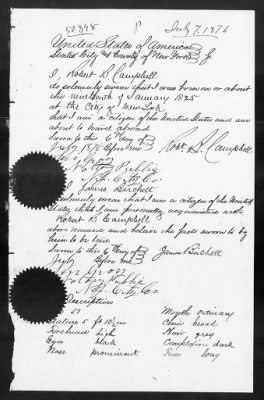 50348
July 7, 1876
United States of America
State, City and County of New York
I, Robert B. Campbell
do solemnly swear that I was born on or about
the of January 1825
at the City of New York
that I am a citizen of the United States and am
about to travel abroad
Sworn to this 6 day of
July 1876 before me
Robt B. Campbell
Notary Public
N.Y. City Co
I, James Birchett
solemnly swear that I am a citizen of the United
States, that I am personally acquainted with
Robert B. Campbell
above named and believe the facts sworn to by
him to be true
Sworn to this 6 day of
July Before me
James Birchett
Notary Public
N.Y. City Co
Description
51
Stature 5 ft 10½ in
Forehead high
Eyes black
Nose prominent
Mouth ordinary
Chin broad
Hair grey
Complexion dark
Face long